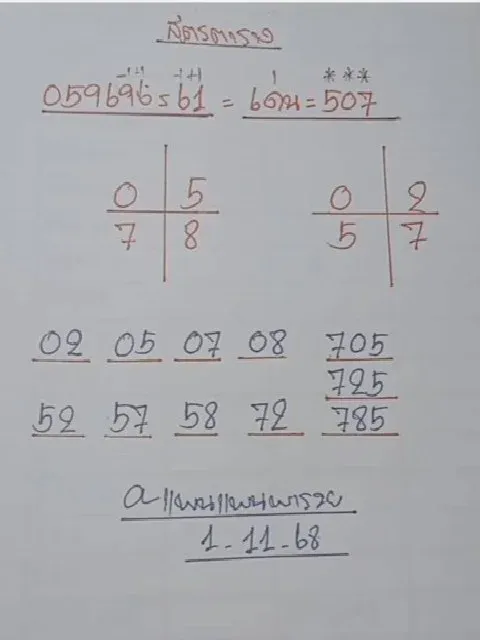 สูตรตาราง
-1+1 -1+1
059696=61 = เด่น=507
***
0 5
7 8
0 2
5 7
02 05 07 08 705
725
52 57 58 72 785
1-11-68